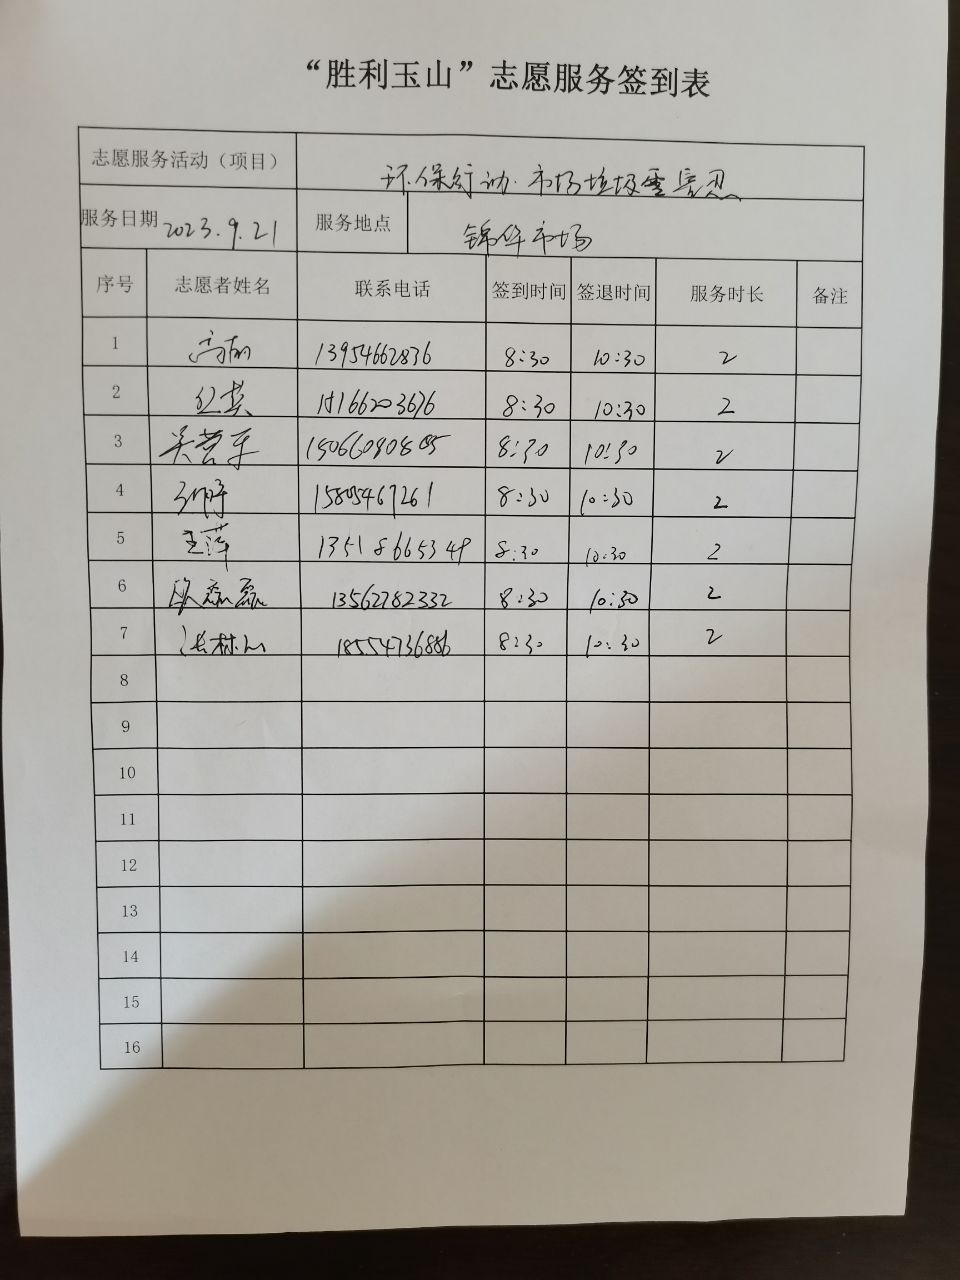 “胜利玉山”志愿服务签到表
志愿服务活动（项目） 环保行动·市场垃圾零容忍
服务日期 2023.9.21 服务地点 锦华市场
序号 志愿者姓名 联系电话 签到时间 签退时间 服务时长 备注
1 13954662836 8:30 10:30 2
2 8:30 10:30 2
3 8:30 10:30 2
4 15805467261 8:30 10:30 2
5 王萍 13518665349 8:30 10:30 2
6 13562782332 8:30 10:30 2
7 张林山 18554736886 8:30 10:30 2
8
9
10
11
12
13
14
15
16